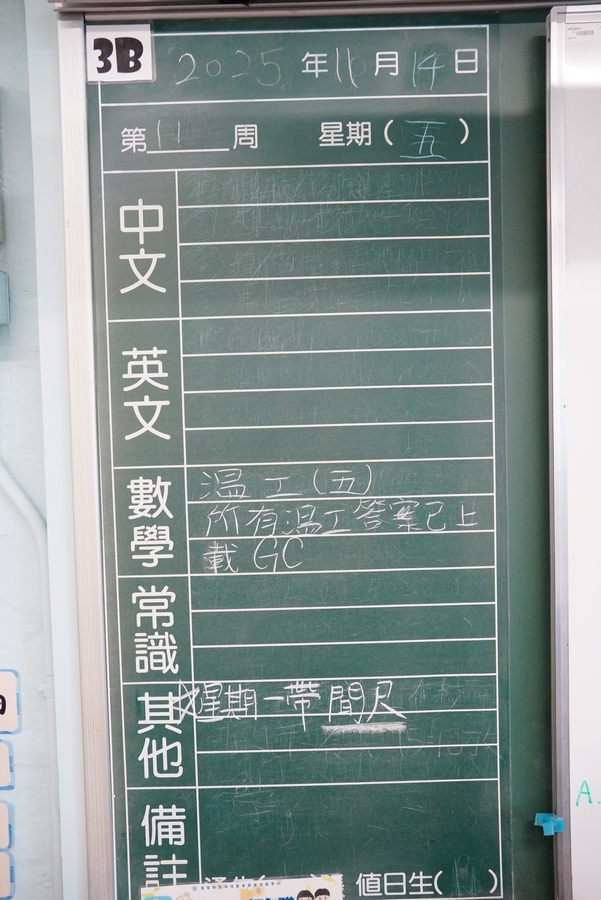 3B
2025 年 11 月 14 日
第 11 周 星期 ( 五 )
中文
英文
數學
溫工(五)
所有溫工答案已上
載 GC
常識
其他
星期一帶間尺
備註
值日生( )